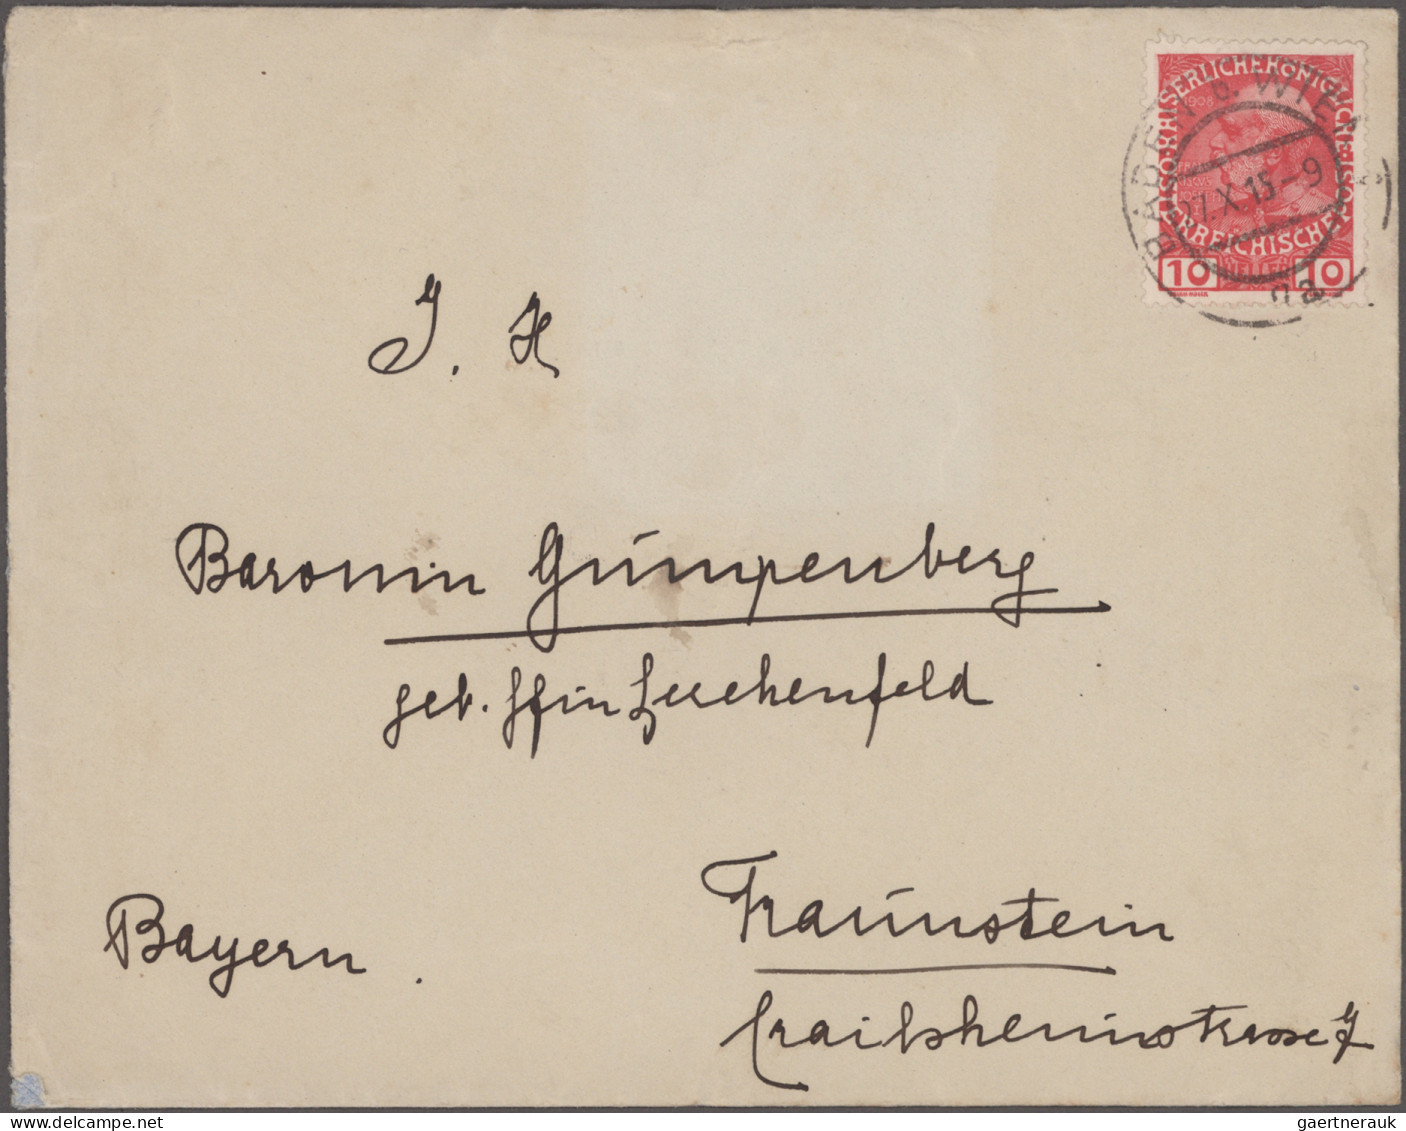 KAISERLICHE KÖNIGLICHE ÖSTERREICHISCHE POST
1908
10 HELLER 10
BADEN b. WIEN
27.X.15-9
2a
I. H
Baronin Gumpenberg
geb. Gfin Lerchenfeld
Traunstein
Bayern.
Crailsheimstrasse 7
gaertnerauk